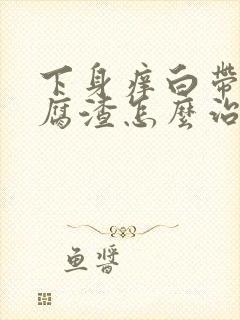 下身痒白带
腐渣怎麽治
鱼酱